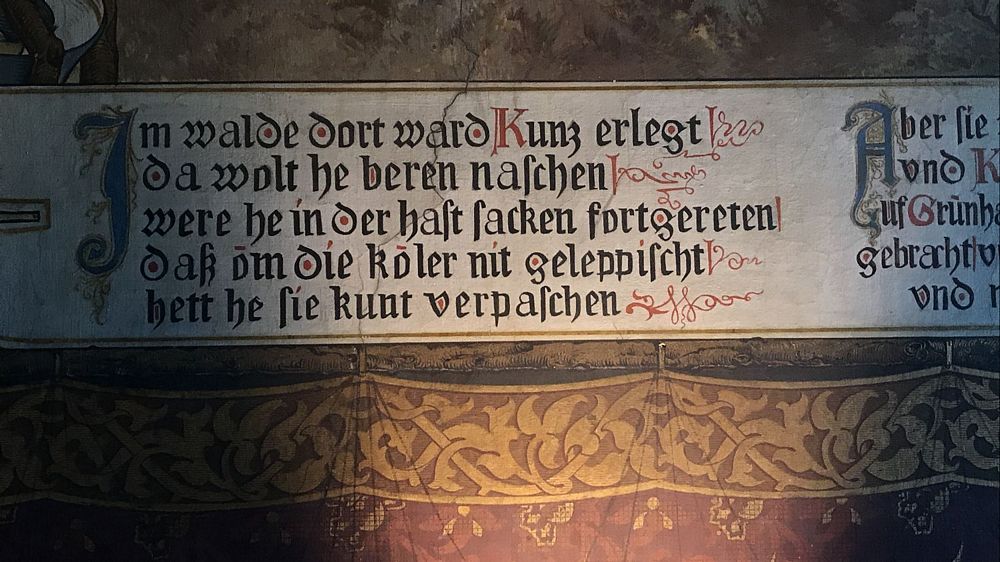 Im walde dort ward Kunz erlegt
da wolt he beren naſchen
were he in der haſt ſacken fortgereten
daß ōm die kōler nit geleppiſcht
hett he ſie kunt verpaſchen
Aber ſie
vnd
uf Grünh
gebracht
vnd